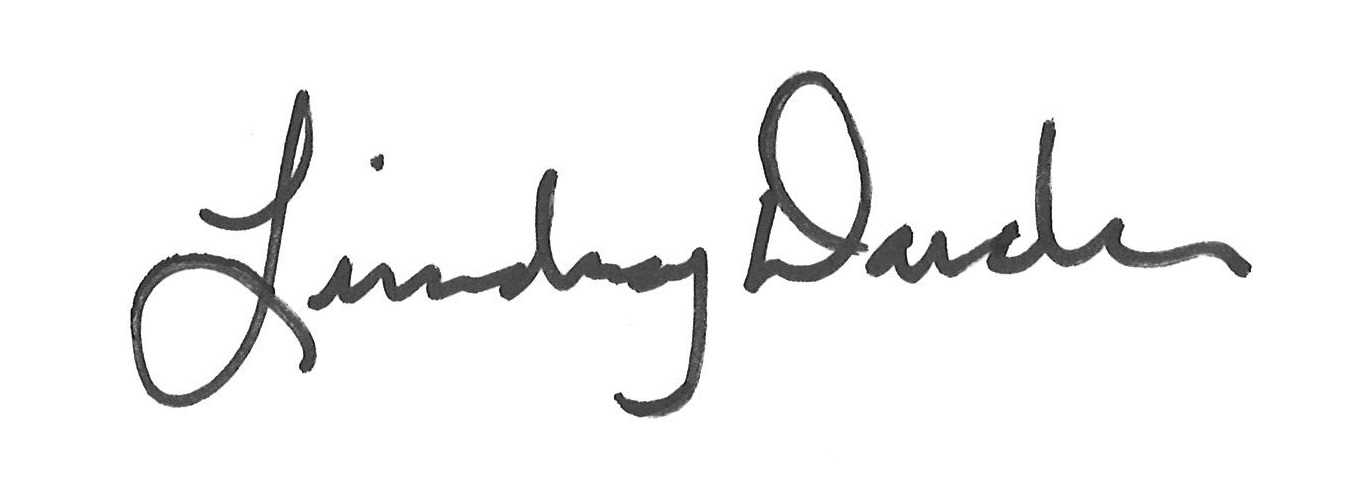 Lindsay Darden